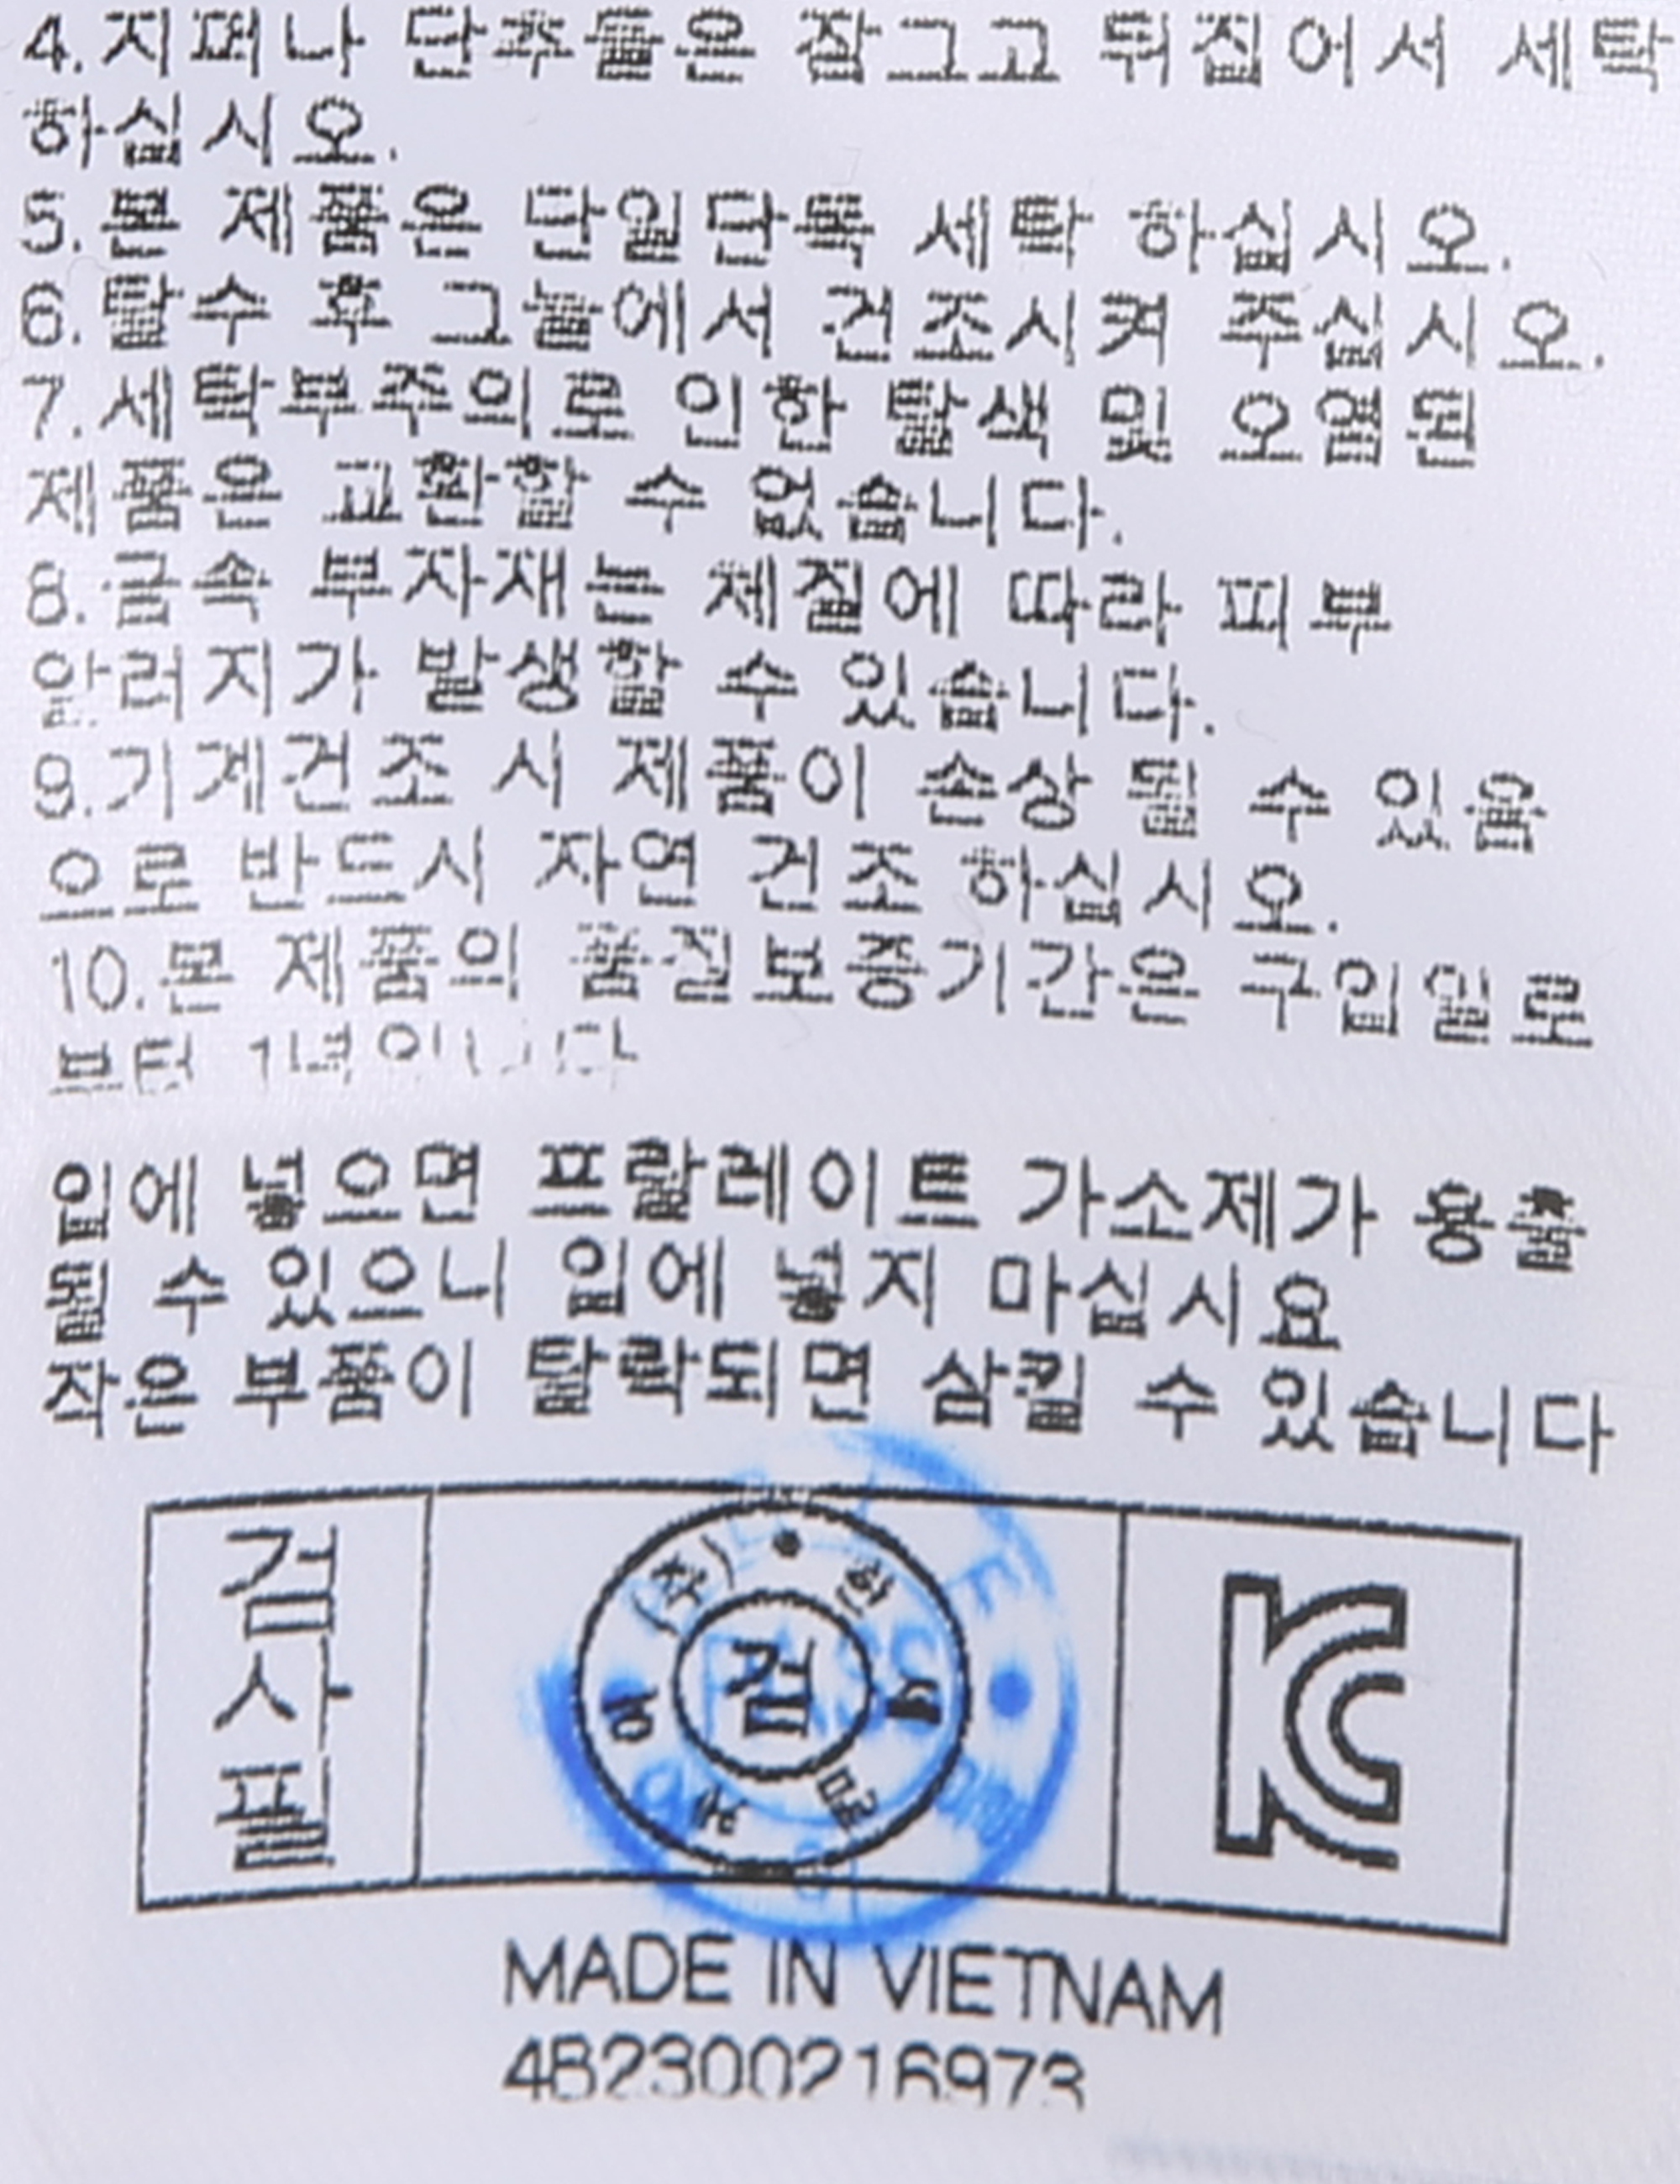 4.지퍼나 단추들은 잠그고 뒤집어서 세탁
하십시오.
5.본 제품은 단일단독 세탁 하십시오.
6.탈수 후 그늘에서 건조시켜 주십시오.
7.세탁부주의로 인한 탈색 및 오염된
제품은 교환할 수 없습니다.
8.금속 부자재는 체질에 따라 피부
알러지가 발생할 수 있습니다.
9.기계건조 시 제품이 손상 될 수 있음
으로 반드시 자연 건조 하십시오.
10.본 제품의 품질보증기간은 구입일로
부터 1년입니다
입에 넣으면 프탈레이트 가소제가 용출
될 수 있으니 입에 넣지 마십시요
작은 부품이 탈락되면 삼킬 수 있습니다
검사필
(주)한세
검
KC
MADE IN VIETNAM
4B2300216973